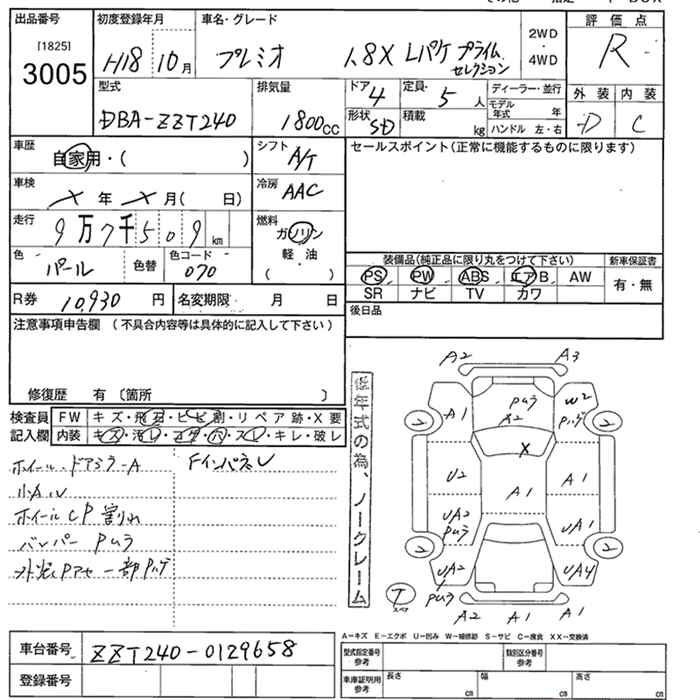 出品番号 初度登録年月 車名・グレード 2WD ・ 4WD 評価点
[1825]
3005 H18 10月 プレミオ 1.8X Lパケ プライム セレクション R
型式 排気量 ドア 4 定員 5人 ディーラー・並行 外装 内装
DBA-ZZT240 1800cc 形状 SD 積載 kg モデル年式 年 D C
ハンドル 左・右
車歴 自家用・( ) シフト A/T セールスポイント(正常に機能するものに限ります)
車検 × 年 × 月( 日) 冷房 AAC
走行 9万7千509km 燃料 ガソリン
軽・油
( )
色 パール 色替 色コード 070
装備品(純正品に限り丸をつけて下さい) 新車保証書
PS PW ABS エアB AW 有・無
SR ナビ TV カワ
R券 10,930円 名変期限 月 日
後日品
注意事項申告欄 (不具合内容等は具体的に記入して下さい)
修復歴 有 〔箇所 〕
検査員 FW キズ・飛石・ヒビ割・リペア跡・X要
記入欄 内装 キズ・汚レ・コゲ・穴・スレ・キレ・破レ
ホイール・ドアミラーA FインパネU
小A・U
ホイールCP割れ
バンパーPムラ
低年式の為、ノークレーム
A2 A3
A1 Pムラ A2 W2 Pハゲ
X
U2 A1 A1
UA2 Pムラ UA1
UA2 Pムラ UA4
A2 A1 A2
T スペア
A－キズ E－エクボ U－凹み W－補修跡 S－サビ C－腐食 XX－交換済
車台番号 ZZT240-0129658
登録番号
型式指定番号 参考 類別区分番号 参考
車庫証明用 参考 長さ cm 幅 cm 高さ cm